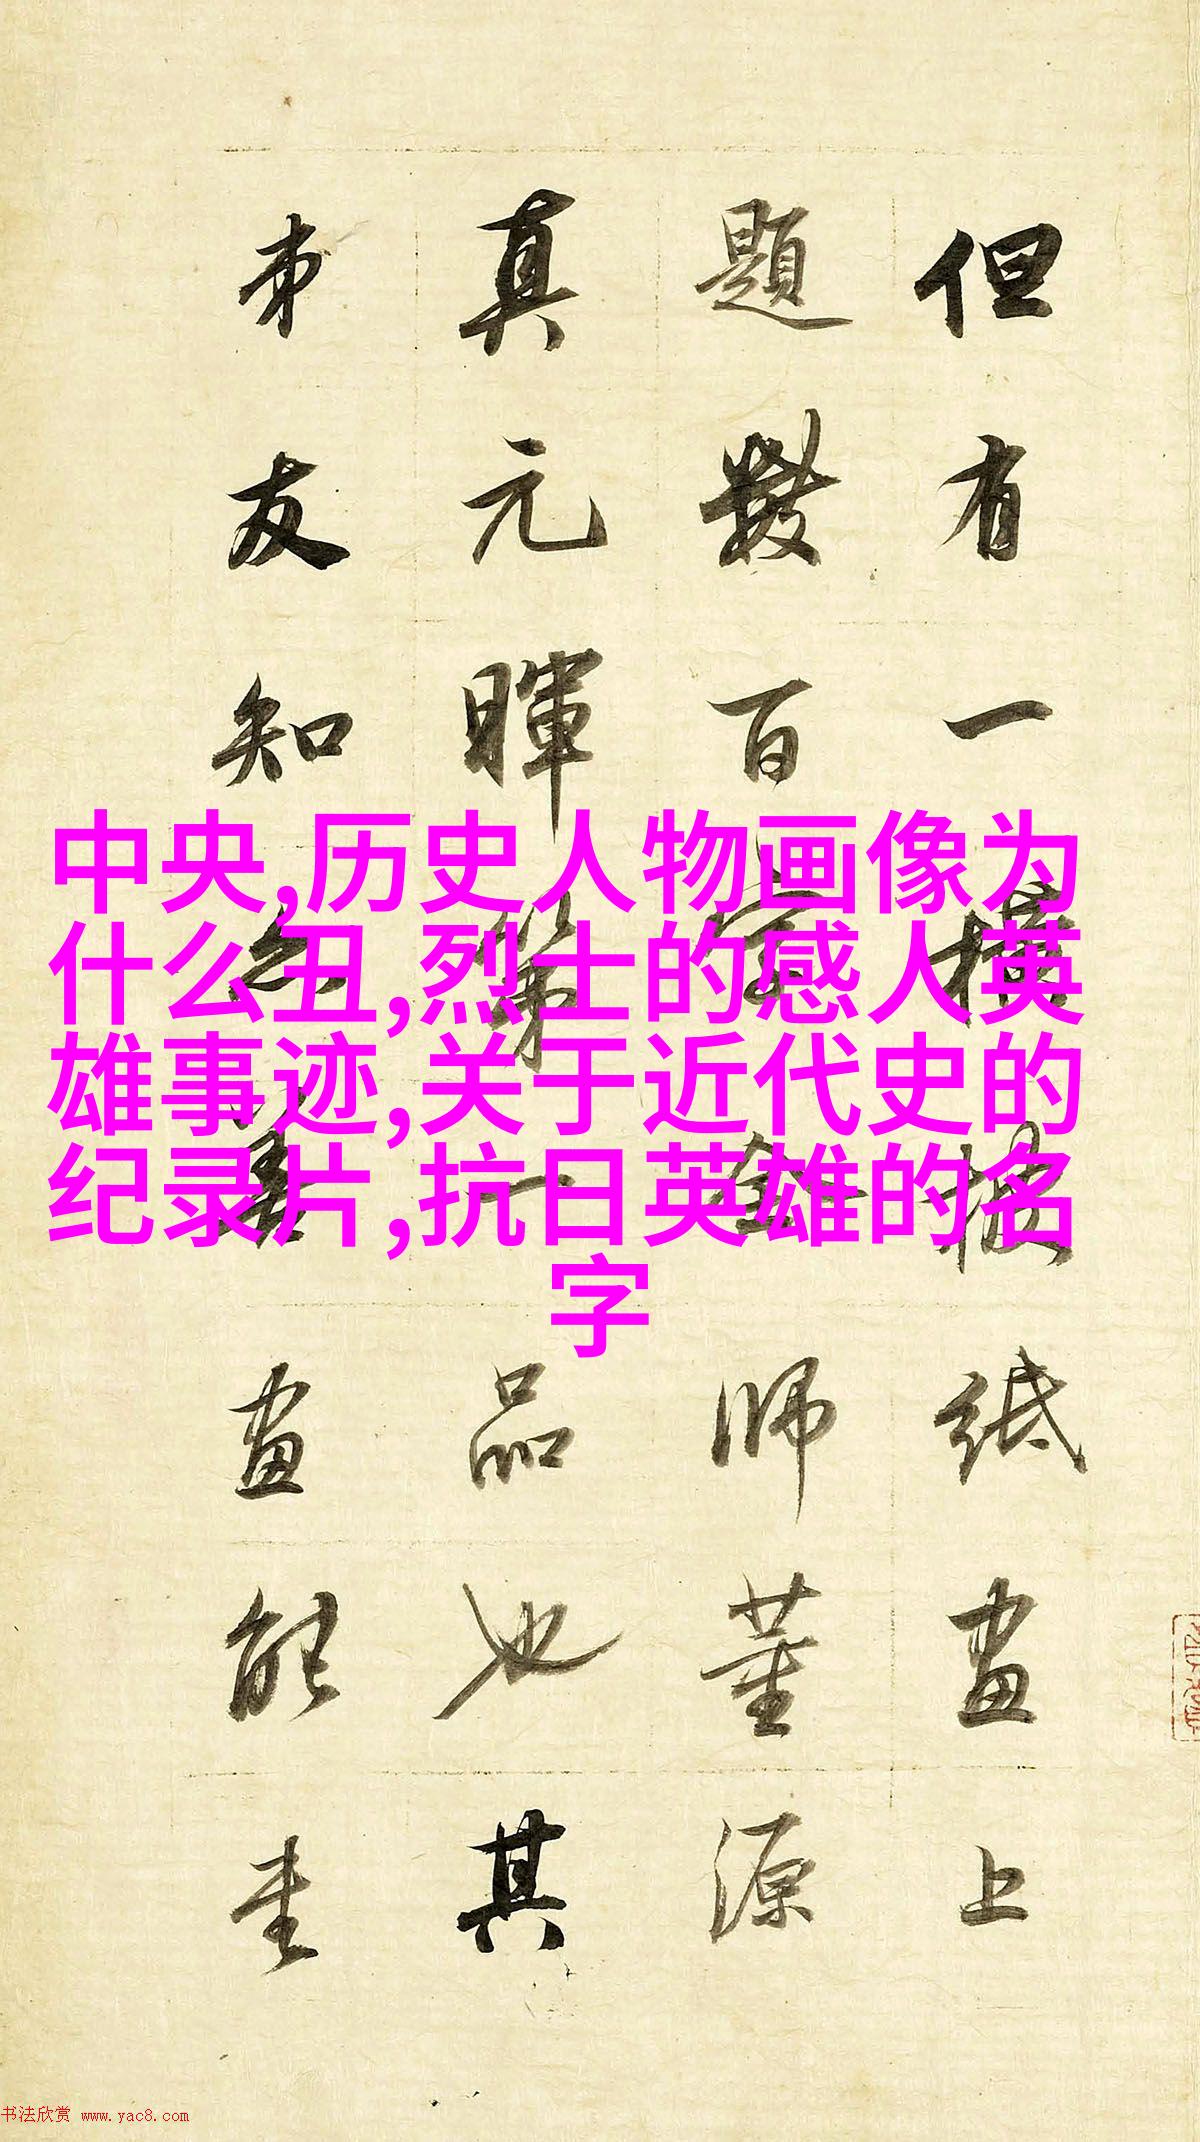 但有一横披纸画上
題數百字全师董源
真元暉第一品也其
弟友知
画能
中央,历史人物画像为
什么丑,烈士的感人英
雄事迹,关于近代史的
纪录片,抗日英雄的名
字
书法欣赏 www.yac8.com